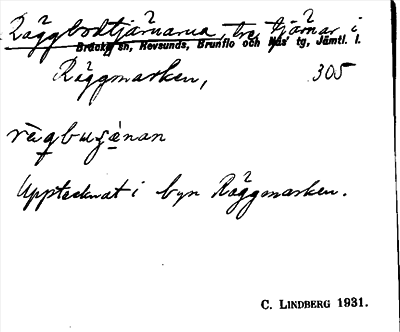 Räggbodtjärnarna, tre tjärnar i
Bräcke sn, Revsunds, Brunflo och Näs tg, Jämtl. l.
Räggmarken, 305
Upptecknat i byn Räggmarken.
C. LINDBERG 1931.